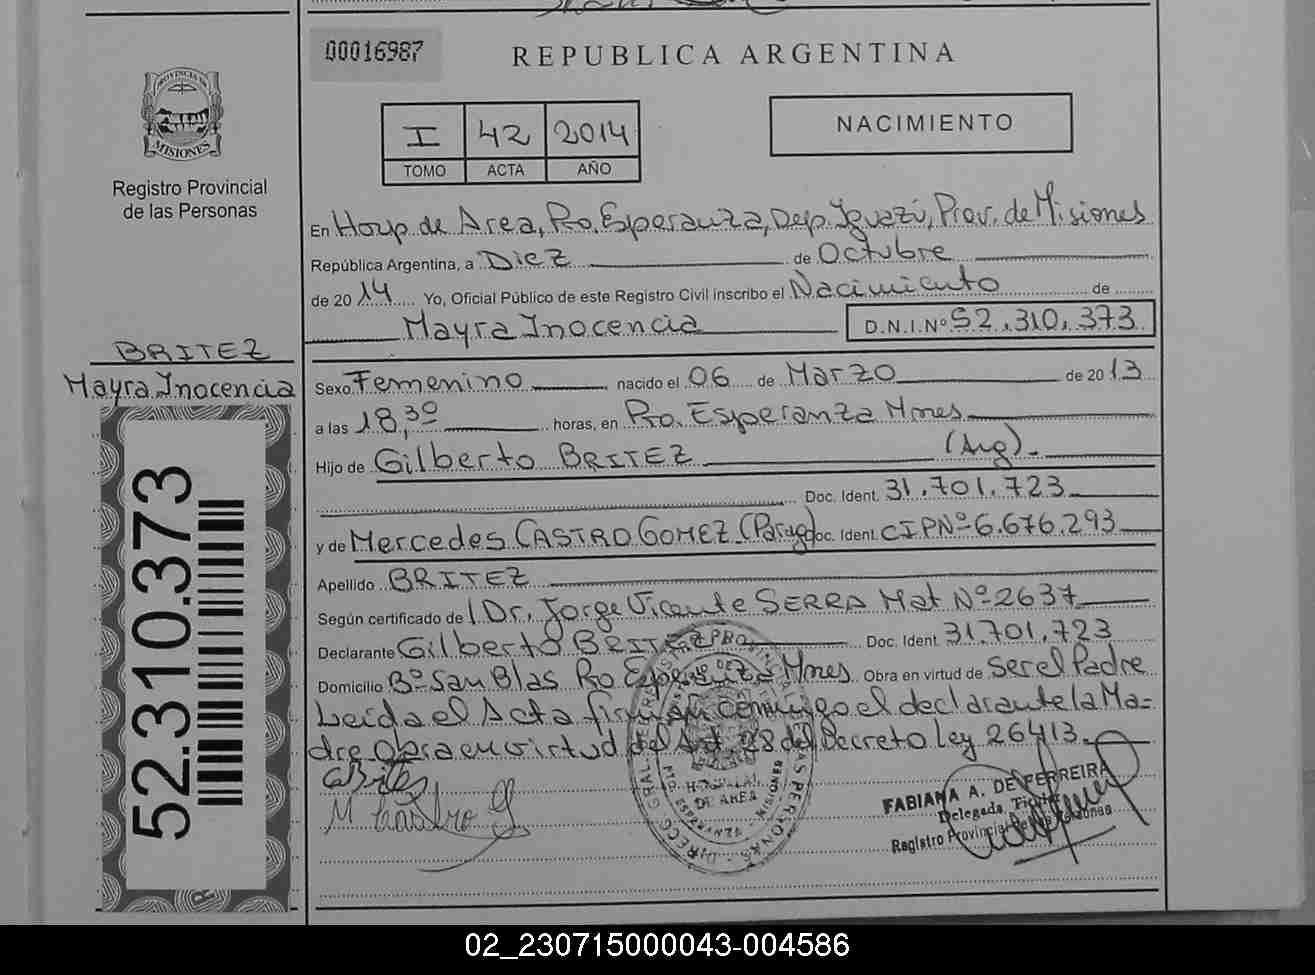 00016987
REPUBLICA ARGENTINA
PROVINCIA DE
MISIONES
Registro Provincial
de las Personas
I 42 2014
TOMO ACTA AÑO
NACIMIENTO
En Hosp. de Area, Pto. Esperanza, Dep. Iguazú, Prov. de Misiones
República Argentina, a Diez de Octubre
de 2014 Yo, Oficial Público de este Registro Civil inscribo el Nacimiento de
Mayra Inocencia D.N.I.Nº 52.310.373
BRITEZ
Mayra Inocencia
52.310.373
Sexo Femenino nacido el 06 de Marzo de 2013
a las 18,30 horas, en Pto. Esperanza Mnes
Hijo de Gilberto BRITEZ (Arg).
Doc. Ident. 31.701.723
y de Mercedes CASTRO GOMEZ (Parag) Doc. Ident. CIPNº 6.676.293
Apellido BRITEZ
Según certificado de l Dr. Jorge Vicente SERRA Mat Nº 2637
Declarante Gilberto BRITEZ Doc. Ident. 31.701.723
Domicilio Bº San Blas Pto Esperanza Mnes Obra en virtud de Ser el Padre
Leida el Acta firman conmigo el declarante la Ma-
dre Obra en virtud del Art. 28 del Decreto Ley 26413.
GBritez
M Castro G
HOSPITAL
DE AREA
FABIANA A. DE FERREIRA
Delegada Titular
Registro Provincial de las Personas
02_230715000043-004586